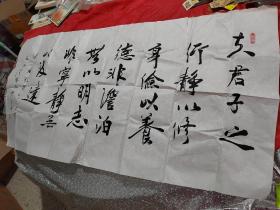 夫君子之
行靜以修
身儉以養
德非澹泊
無以明志
非寧靜無
以致遠